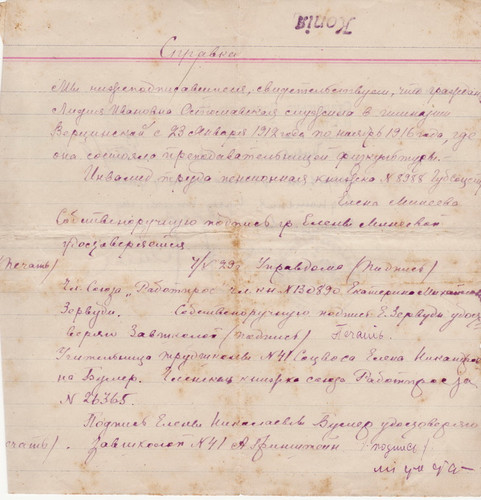 Копія
Справка
Мы нижеподписавшиеся, свидетельствуем, что граждан
Лидия Ивановна служила в гимназии
с 23 Января 1912 года по ноябрь 1916 года, где
она состояла преподавательницей физкультуры.
Инвалид труда пенсионная книжка N 8988
Елена Минеева
Собственоручную подпись гр. Елены Минеевой
удостоверяется
(Печать) 29 г Управдома (подпись)
Чл. Союза „Работпрос чл. кн N 130890 Екатерина
Зервуди. Собственоручную подпись Е. Зервуди удос
веряю Завшколой (подпись) Печать.
Учительница трудшколы N 41 Соцвоса Елена
на Бумер. Членская книжка союза Работпроса за
N 26365.
Подпись Елены Николаевны Бумер удостоверяю
завшколой N 41 А (подпись)